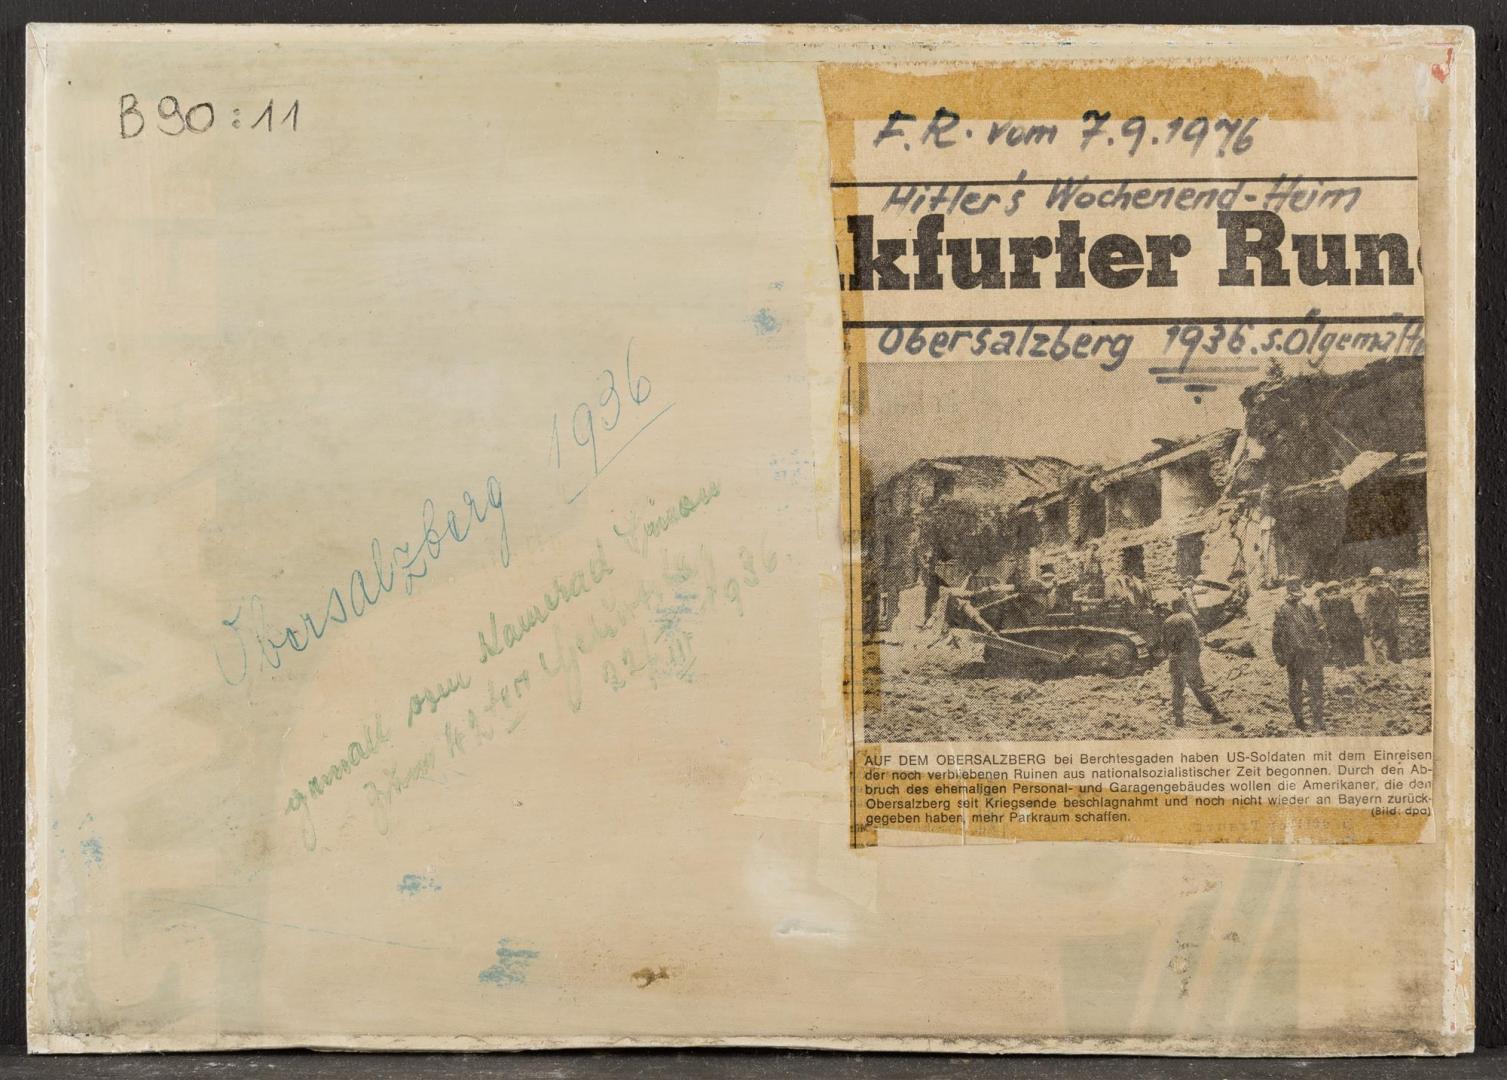 B 90 : 11
Obersalzberg 1936
gemalt vom Kamerad
zum 42 ten Geburtstag
22/III 1936.
F. R. vom 7.9.1976
Hitler's Wochenend-Heim
kfurter Run
Obersalzberg 1936. s. Ölgemält
AUF DEM OBERSALZBERG bei Berchtesgaden haben US-Soldaten mit dem Einreisen
der noch verbliebenen Ruinen aus nationalsozialistischer Zeit begonnen. Durch den Ab-
bruch des ehemaligen Personal- und Garagengebäudes wollen die Amerikaner, die den
Obersalzberg seit Kriegsende beschlagnahmt und noch nicht wieder an Bayern zurück-
gegeben haben, mehr Parkraum schaffen.
(Bild: dpa)